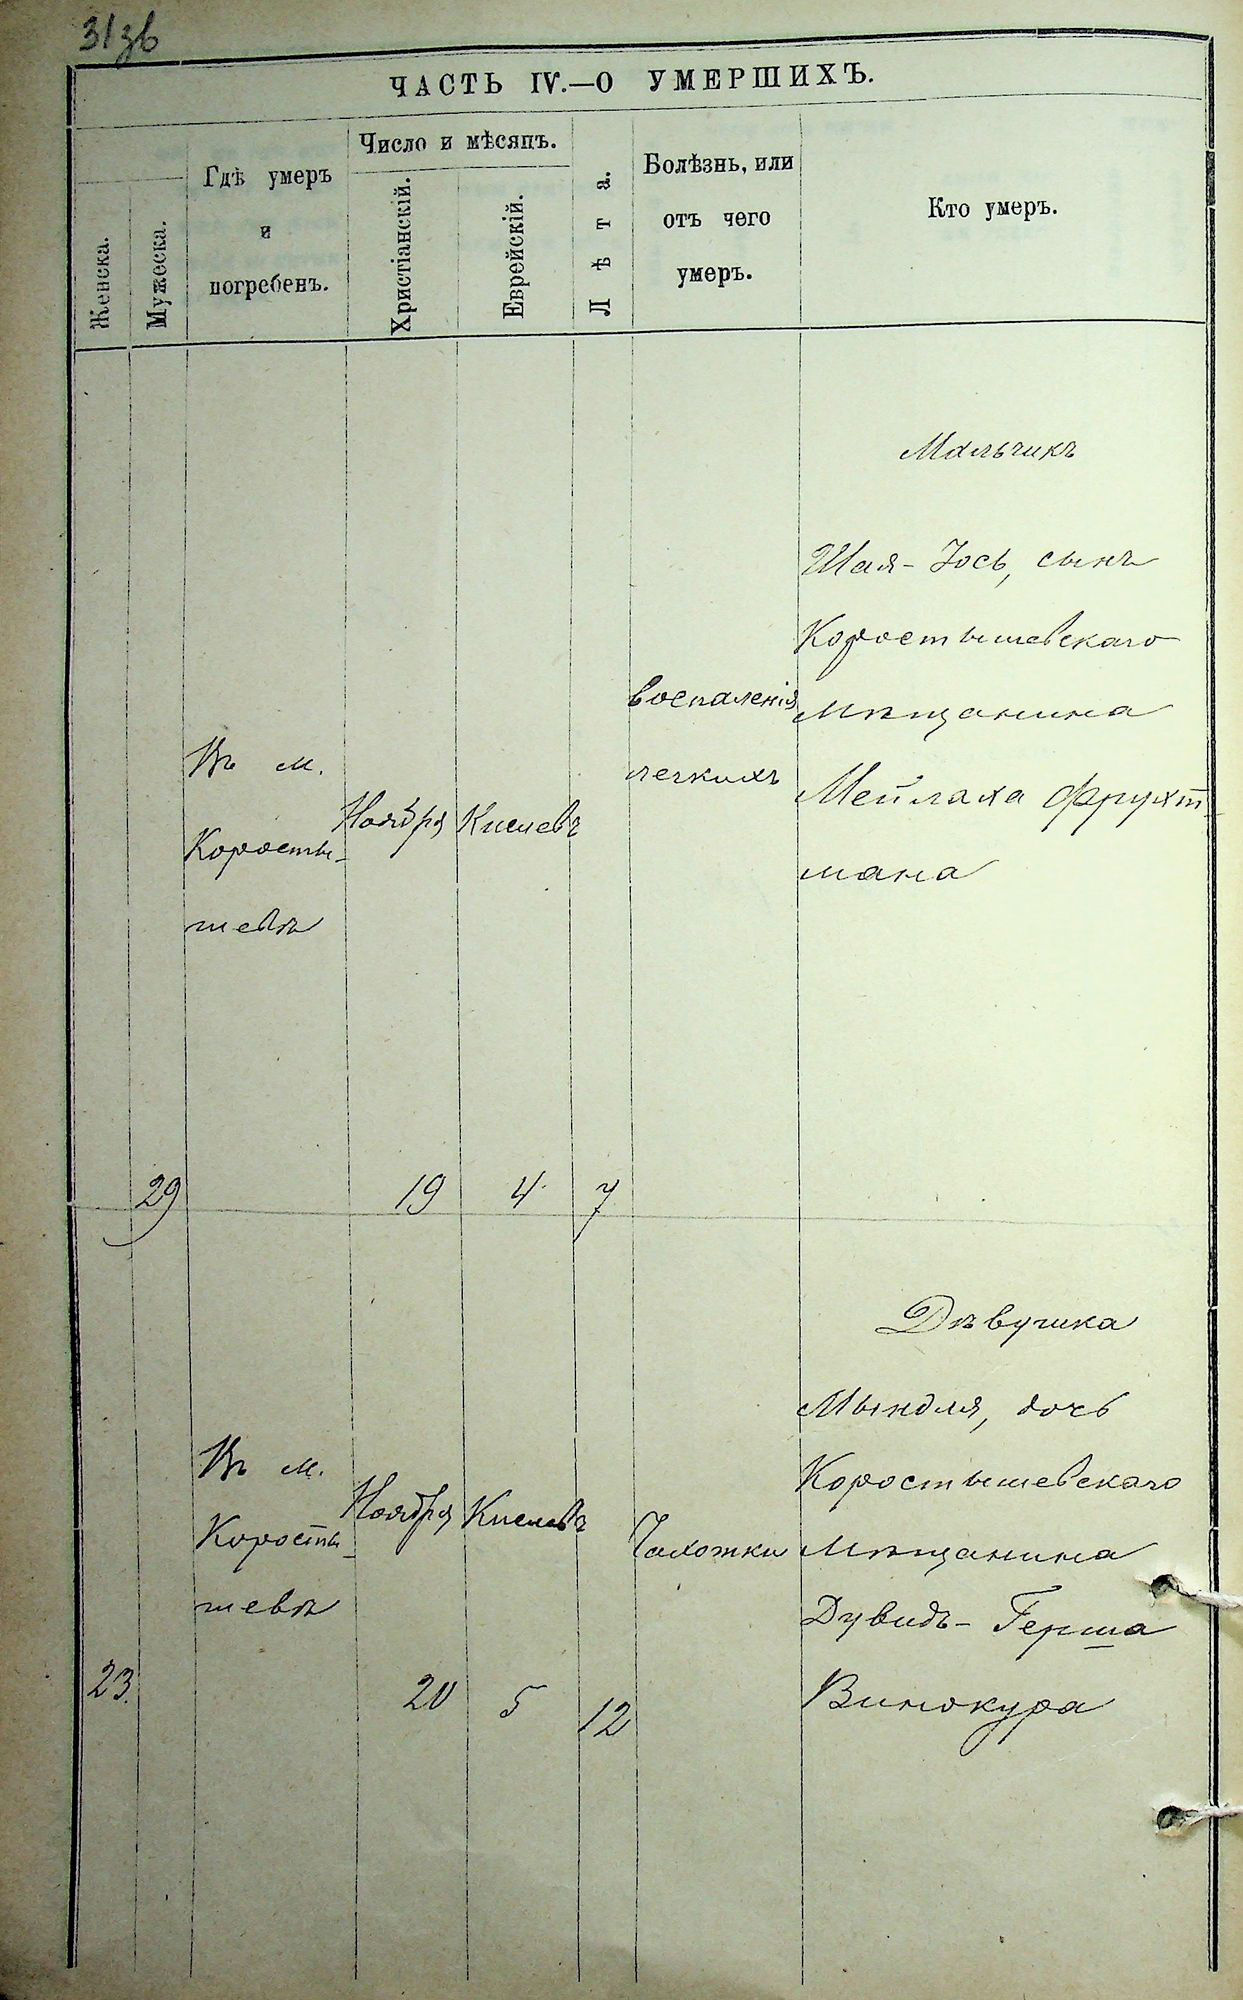 31зв
ЧАСТЬ IV.—О УМЕРШИХЪ.
Женска.
Мужеска.
Гдѣ умеръ
и
погребенъ.
Число и мѣсяцъ.
Христіанскій.
Еврейскій.
Лѣта.
Болѣзнь, или
отъ чего
умеръ.
Кто умеръ.
29
Въ м.
Коросты-
шевѣ
Ноября
19
Кислевъ
4
7
воспаленія
легкихъ
Мальчикъ
Шая-Іось, сынъ
Коростышевскаго
мѣщанина
Мейлаха Фрухт-
мана
23.
Въ м.
Коросты-
шевѣ
Ноября
20
Кислевъ
5
12
Чахотки
Дѣвушка
Мындля, дочь
Коростышевскаго
мѣщанина
Дувидъ-Герша
Винокура